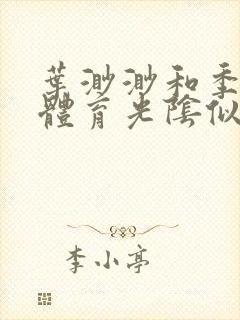 葉渺渺和季
體育光陰似
李小亭